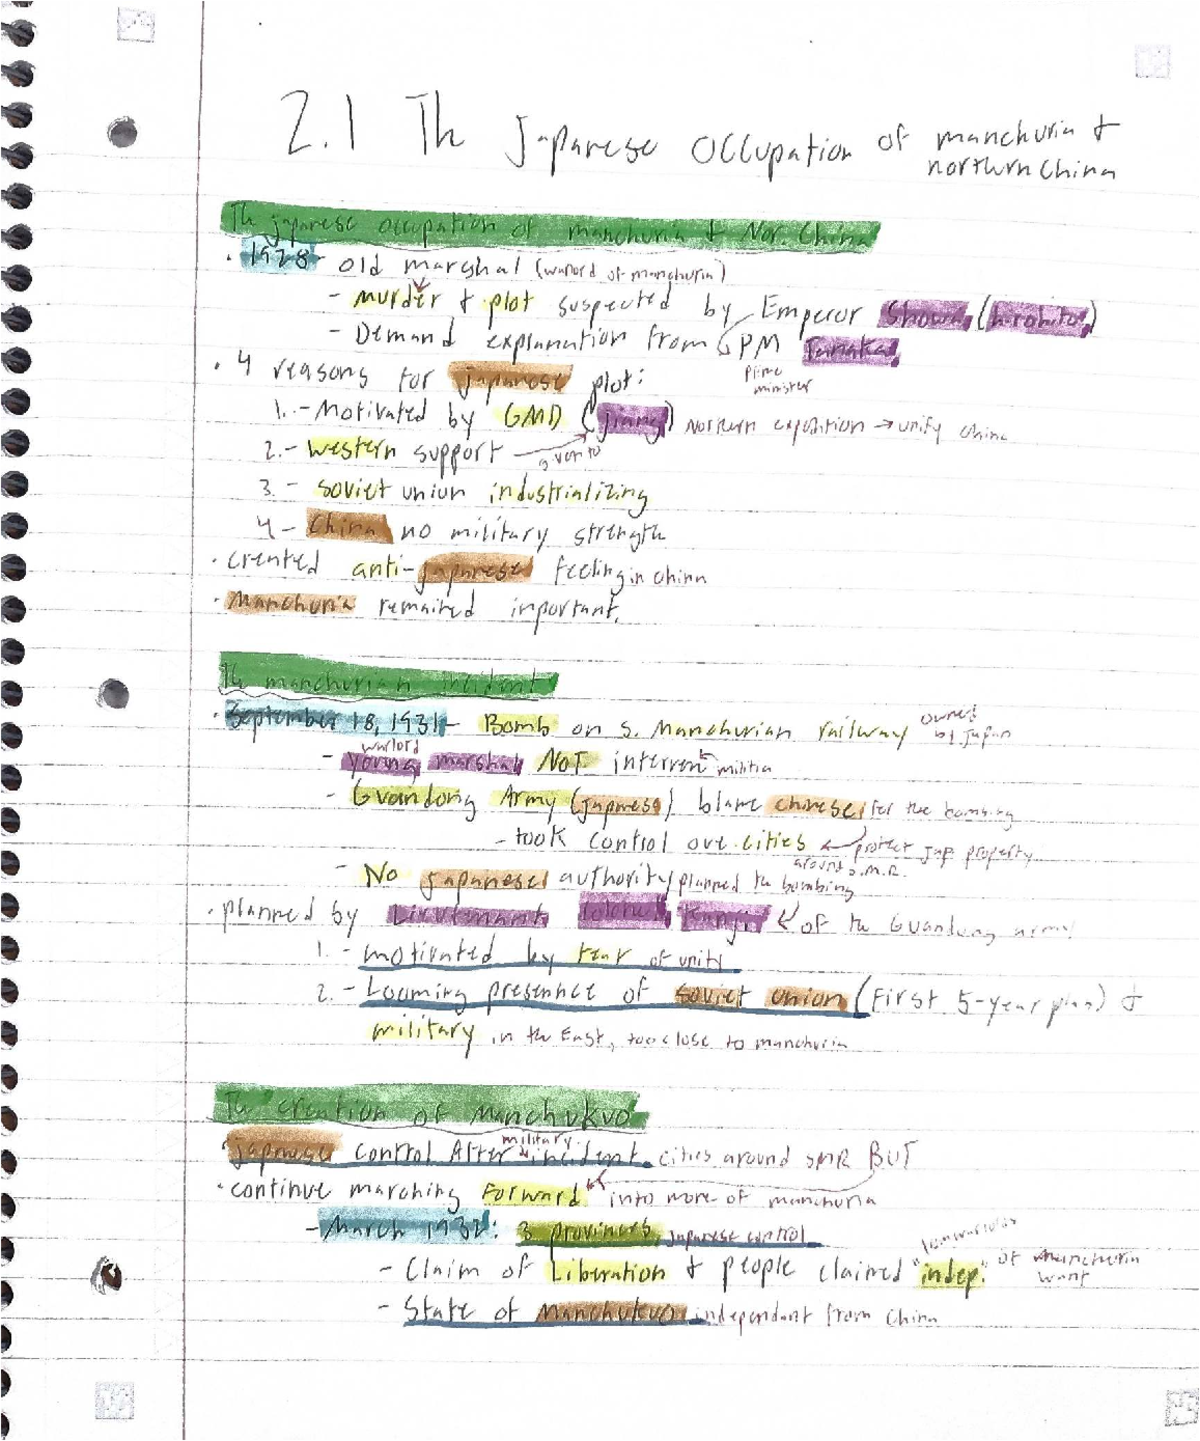 2.1 Th Japanese Occupation of manchuria &
northern China
Th japanese occupation of manchuria & Nor. China
• 1928 - old marshal (warlord of manchuria)
- Murder & plot suspected by Emperor Showa (hirohito)
- Demand explanation from PM Tanaka
prime
minister
• 4 reasons for japanese plot:
1. - Motivated by GMD (jiang) Northern expedition → unify china
2. - western support
given to
3. - soviet union industrializing
4 - China no military strength
• created anti-japanese feeling in china
• Manchuria remained important.
Th manchurian incident
• September 18, 1931 - Bomb on S. Manchurian railway owned
by Japan
warlord
- young marshal NOT interven militia
- Guandong Army (japnese) blame chinese for the bombing
- took control over cities ← protect Jap. property
around S.M.R.
- No japanese authority planned th bombing
• planned by Lieutenant Colonel Kanji ← of th Guandong army
1. - motivated by fear of unity
2. - Looming presence of soviet union (First 5-year plan) &
military in the East, too close to manchuria
Th creation of Manchukuo
military
• japanese control After incident. cities around SMR BUT
• continue marching forward into more of manchuria
- March 1932: 3 provinces Japanese control
- Claim of Liberation & people claimed "indep." of manchuria
want
- State of Manchukuo independant from China